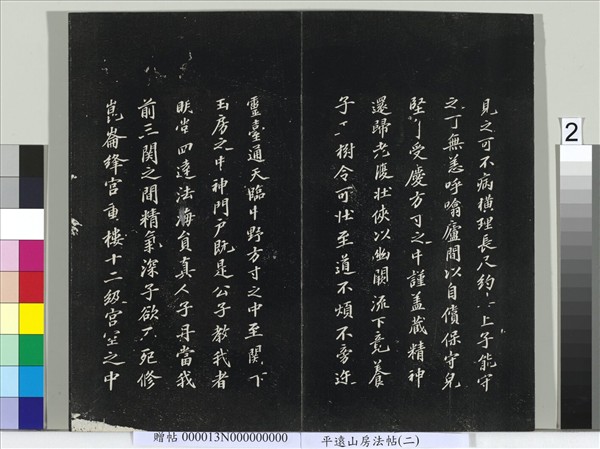 見之可不病橫理長尺約其上子能守
之可無恙呼噏廬間以自償保守完
堅身受慶方寸之中謹蓋藏精神
還歸老復壯俠以幽闕流下竟養
子玉樹令可壯至道不煩不旁迕
靈臺通天臨中野方寸之中至關下
玉房之中神門戶既是公子教我者
明堂四達法海員真人子丹當我
前三關之間精氣深子欲不死修
崑崙絳宮重樓十二級宮室之中
2
贈帖 000013N000000000
平遠山房法帖(二)